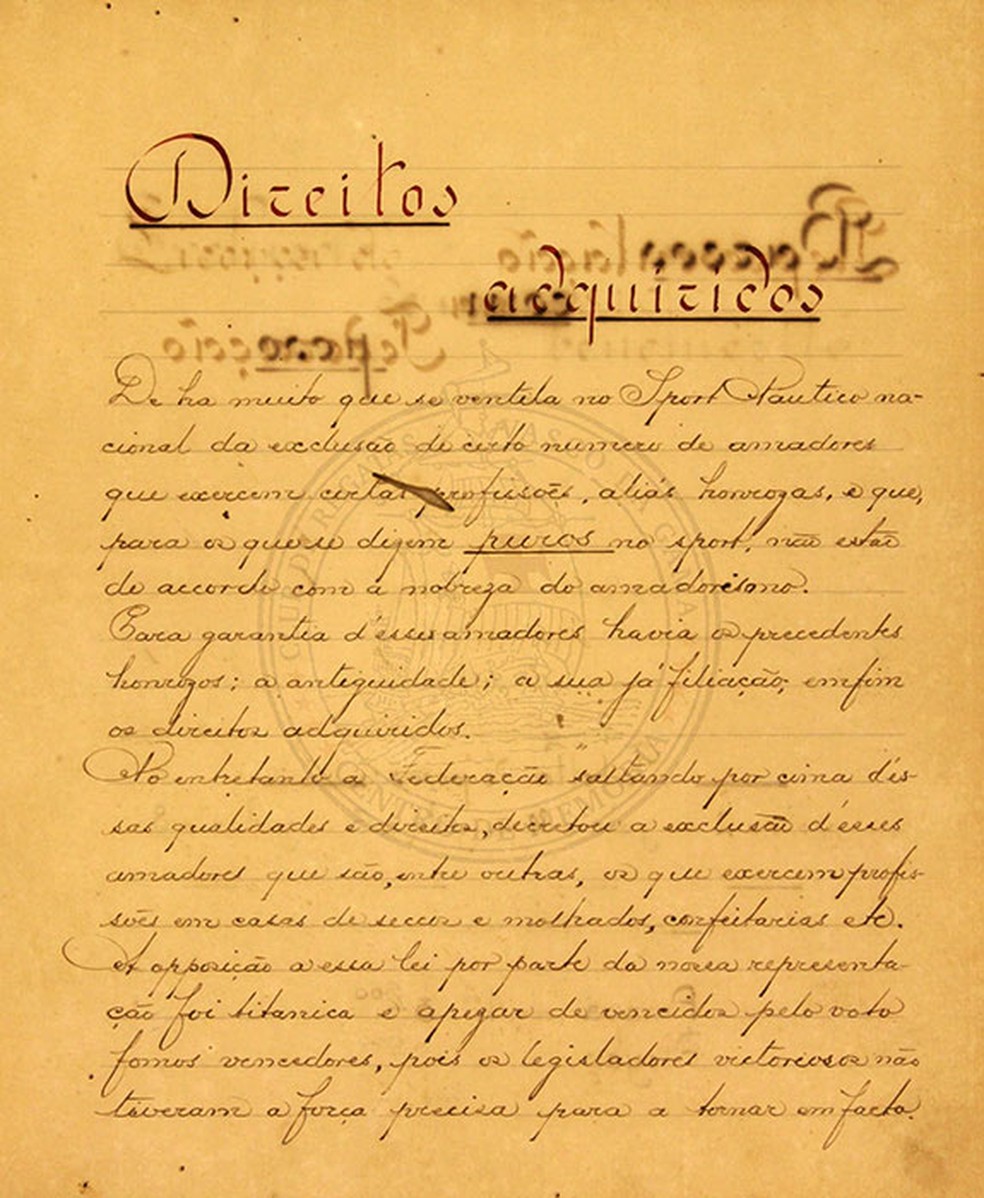 Direitos
adquiridos
De ha muito que se ventila no Sport Nautico na-
cional da exclusão de certo numero de amadores
que exercem certas profissões, aliás honrozas, e que,
para os que se dizem puros no sport, não estão
de accordo com a nobreza do amadorismo.
Para garantia d'esses amadores havia os precedentes
honrozos; a antiguidade; a sua já filiação; emfim
os direitos adquiridos.
No entretanto a Federação saltando por cima d'es-
sas qualidades e direitos, decretou a exclusão d'esses
amadores que são, entre outras, os que exercem profis-
sões em casas de seccos e molhados, confeitarias etc.
A opposição a essa lei por parte da nossa representa-
ção foi titanica e apezar de vencidos pelo voto
fomos vencedores, pois os legisladores victoriosos não
tiveram a força precisa para a tornar em facto.
CENTRO DE MEMORIA